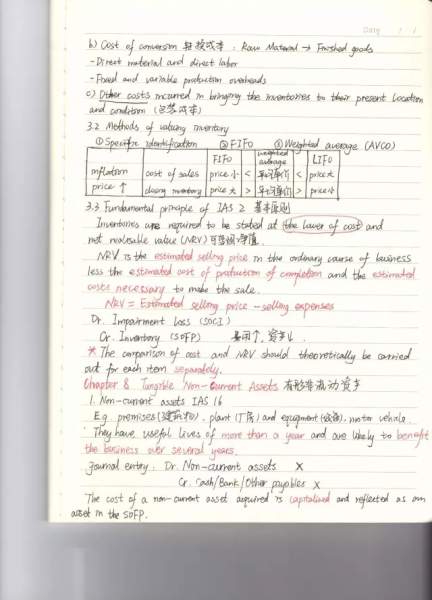 b) Cost of conversion 转换成本: Raw Material → Finished goods
- Direct material and direct labor
- Fixed and variable production overheads
c) Other costs incurred in bringing the inventories to their present location
and condition
3.2 Methods of valuing inventory
① Specific identification ② FIFO ③ Weighted average (AVCO)
FIFO weighted average LIFO
inflation cost of sales price小 < 平均单价 < price大
price ↑ closing inventory price大 > 平均单价 > price小
3.3 Fundamental principle of IAS 2 基本原则
Inventories are required to be stated at the lower of cost and
net realisable value (NRV) 可变现净值.
NRV is the estimated selling price in the ordinary course of business
less the estimated cost of production of completion and the estimated
costs necessary to make the sale.
NRV = Estimated selling price - selling expenses
Dr. Impairment Loss (SOCI)
Cr. Inventory (SOFP) 费用↑, 资产↓
* The comparison of cost and NRV should theoretically be carried
out for each item separately.
Chapter 8 Tangible Non-Current Assets 有形非流动资产
1. Non-current assets IAS 16
E.g. premises(建筑物), plant (厂房) and equipment (设备), motor vehicle.
They have useful lives of more than a year and are likely to benefit
the business over several years.
Journal entry: Dr. Non-current assets X
Cr. Cash/Bank/Other payables X
The cost of a non-current asset acquired is capitalized and reflected as an
asset in the SOFP.